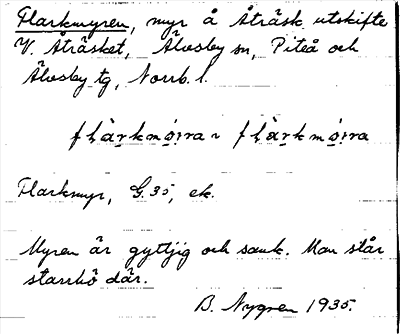 Flarkmyren, myr å Åträsk utskifte
V. Åträsket, Älvsby sn, Piteå och
Älvsby tg, Norrb. l.
Flarkmyr, G. 35, ek.
Myren är gyttjig och sank. Man slår
starrhö där.
B. Nygren 1935.